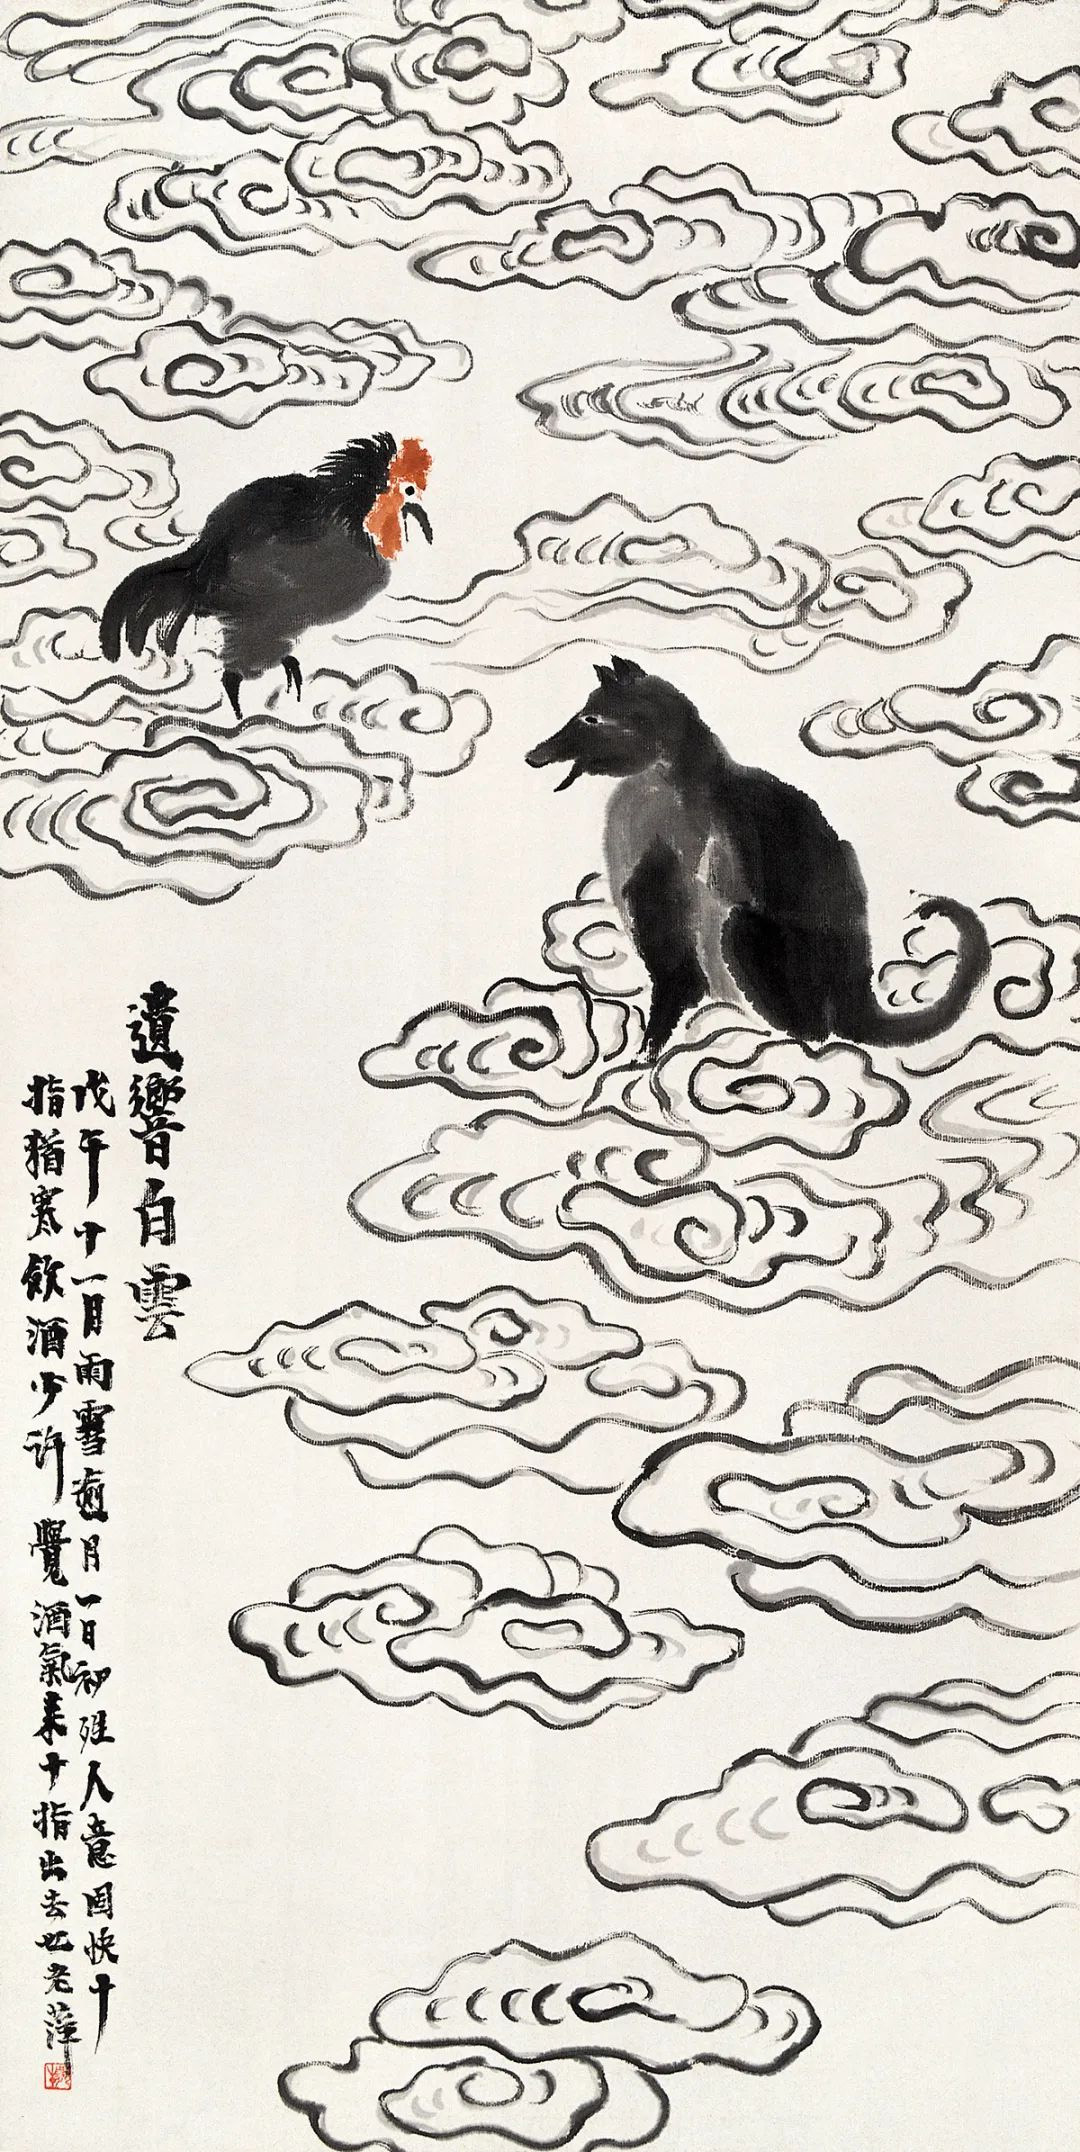 遺響白雲
戊午十一月雨雪逾月一日初㱔人意固快十
指猶寒飲酒少許覺酒氣來十指出去也老萍